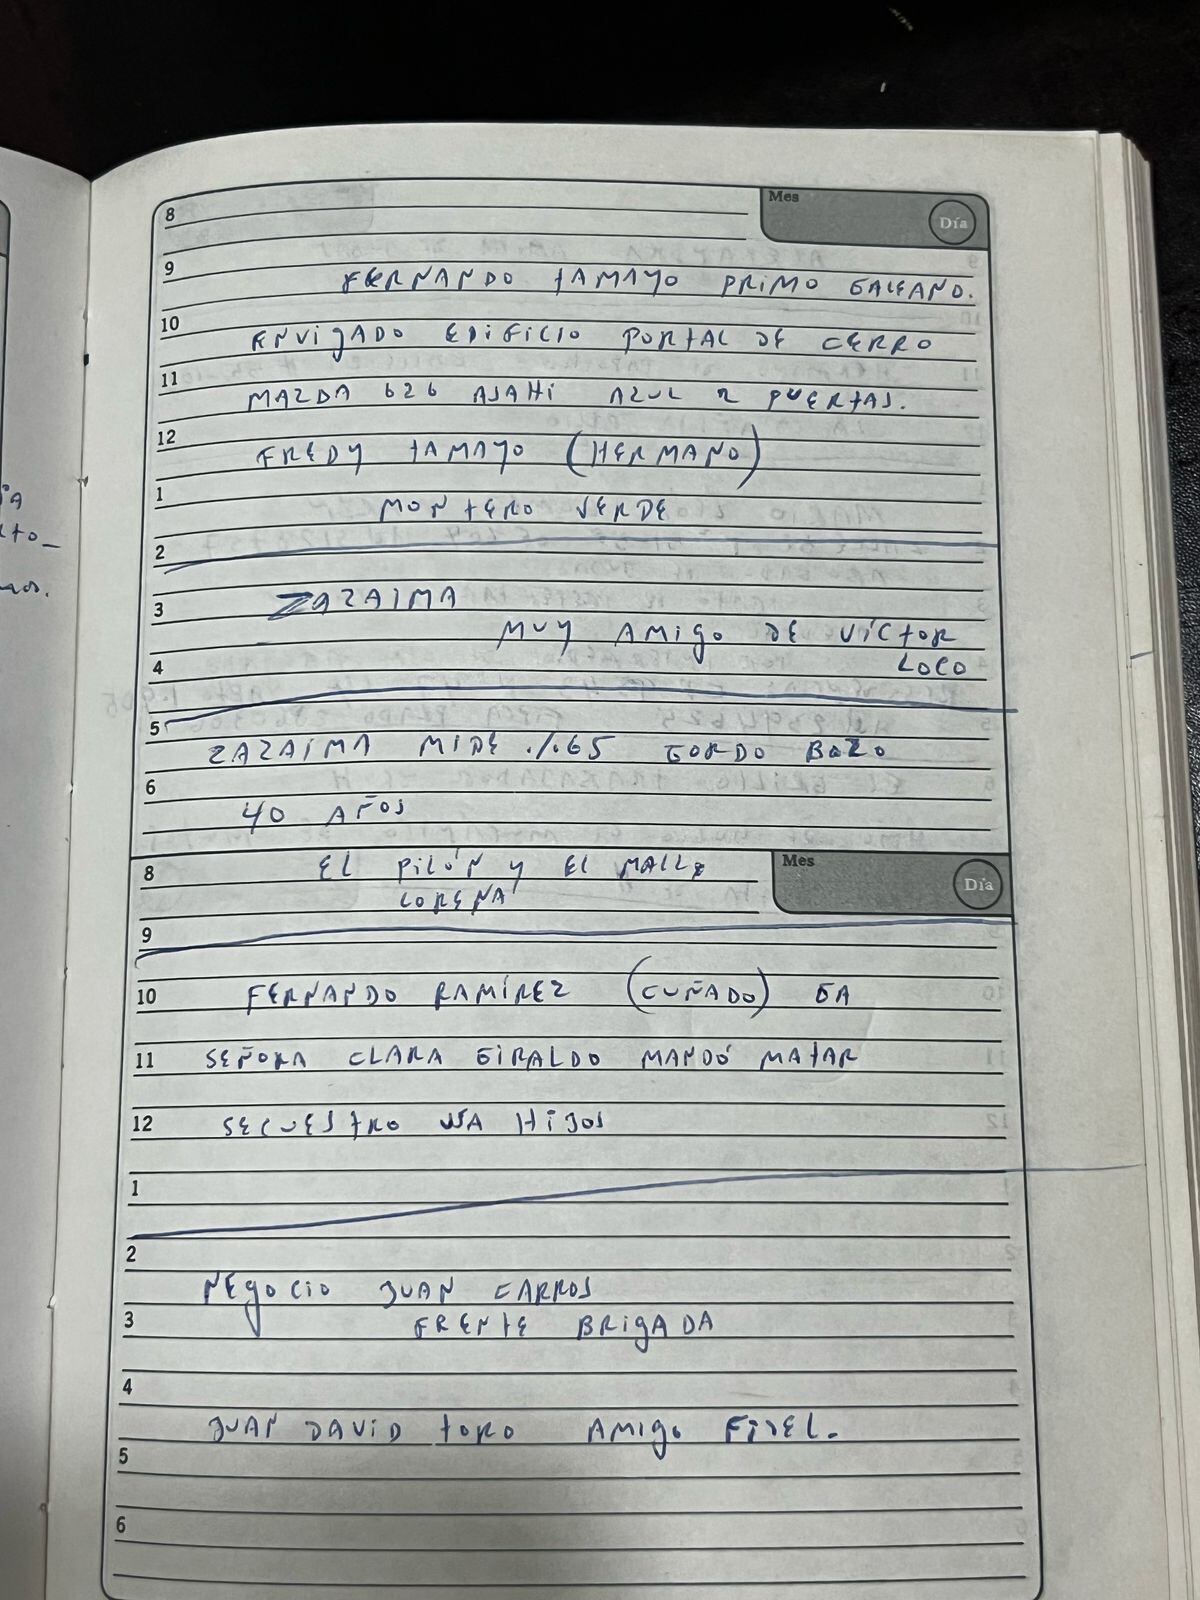 Mes
Día
8
9 FERNANDO TAMAYO PRIMO GALEANO.
10 ENVIGADO EDIFICIO PORTAL DE CERRO
11 MAZDA 626 ASAHI AZUL 2 PUERTAS.
12 FREDY TAMAYO (HERMANO)
1 MONTERO VERDE
2
3 ZAZAIMA
MUY AMIGO DE VÍCTOR
4 LOCO
5 ZAZAIMA MIDE 1.65 GORDO BOZO
6 40 AÑOS
Mes
Día
8 EL PILÓN Y EL MALLE
LOREÑA
9
10 FERNANDO RAMÍREZ (CUÑADO) GA
11 SEÑORA CLARA GIRALDO MANDÓ MATAR
12 SECUESTRO HIJOS
1
2
NEGOCIO JUAN CARROS
3 FRENTE BRIGADA
4
JUAN DAVID TORO AMIGO FIDEL.
5
6